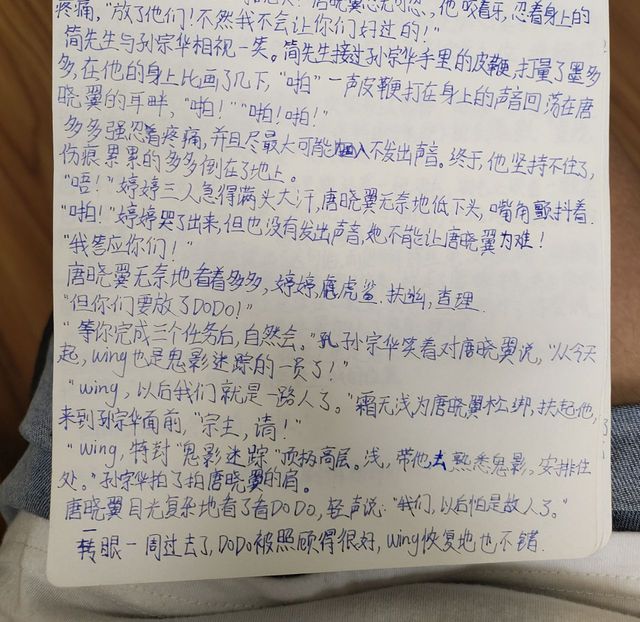 疼痛,"放了他们!不然我不会让你们好过的!"
简先生与孙宗华相视一笑。简先生接过孙宗华手里的皮鞭,打量了墨多
多,在他的身上比画了几下,"啪"一声皮鞭打在身上的声音回荡在唐
晓翼的耳畔,"啪!""啪!啪!"
多多强忍着疼痛,并且尽最大可能不发出声音。终于,他坚持不住了,
伤痕累累的多多倒在了地上。
"唔!"婷婷三人急得满头大汗,唐晓翼无奈地低下头,嘴角颤抖着.
"啪!"婷婷哭了出来,但也没有发出声音,她不能让唐晓翼为难!
"我答应你们!"
唐晓翼无奈地看着多多,婷婷,虎鲨.扶幽,查理.
"但你们要放了DODO!"
"等你完成三个任务后,自然会。"孙宗华笑着对唐晓翼说,"从今天
起,wing也是鬼影迷踪的一员了!"
"wing,以后我们就是一路人了。"霜无浅为唐晓翼松绑,扶起他,
来到孙宗华面前,"宗主,请!"
"wing,特封"鬼影迷踪"顶极高层。浅,带他去熟悉鬼影,安排住
处。"孙宗华拍了拍唐晓翼的肩。
唐晓翼目光复杂地看了看DODO,轻声说:"我们,以后怕是敌人了。"
转眼一周过去了,DODO被照顾得很好,wing恢复地也不错.